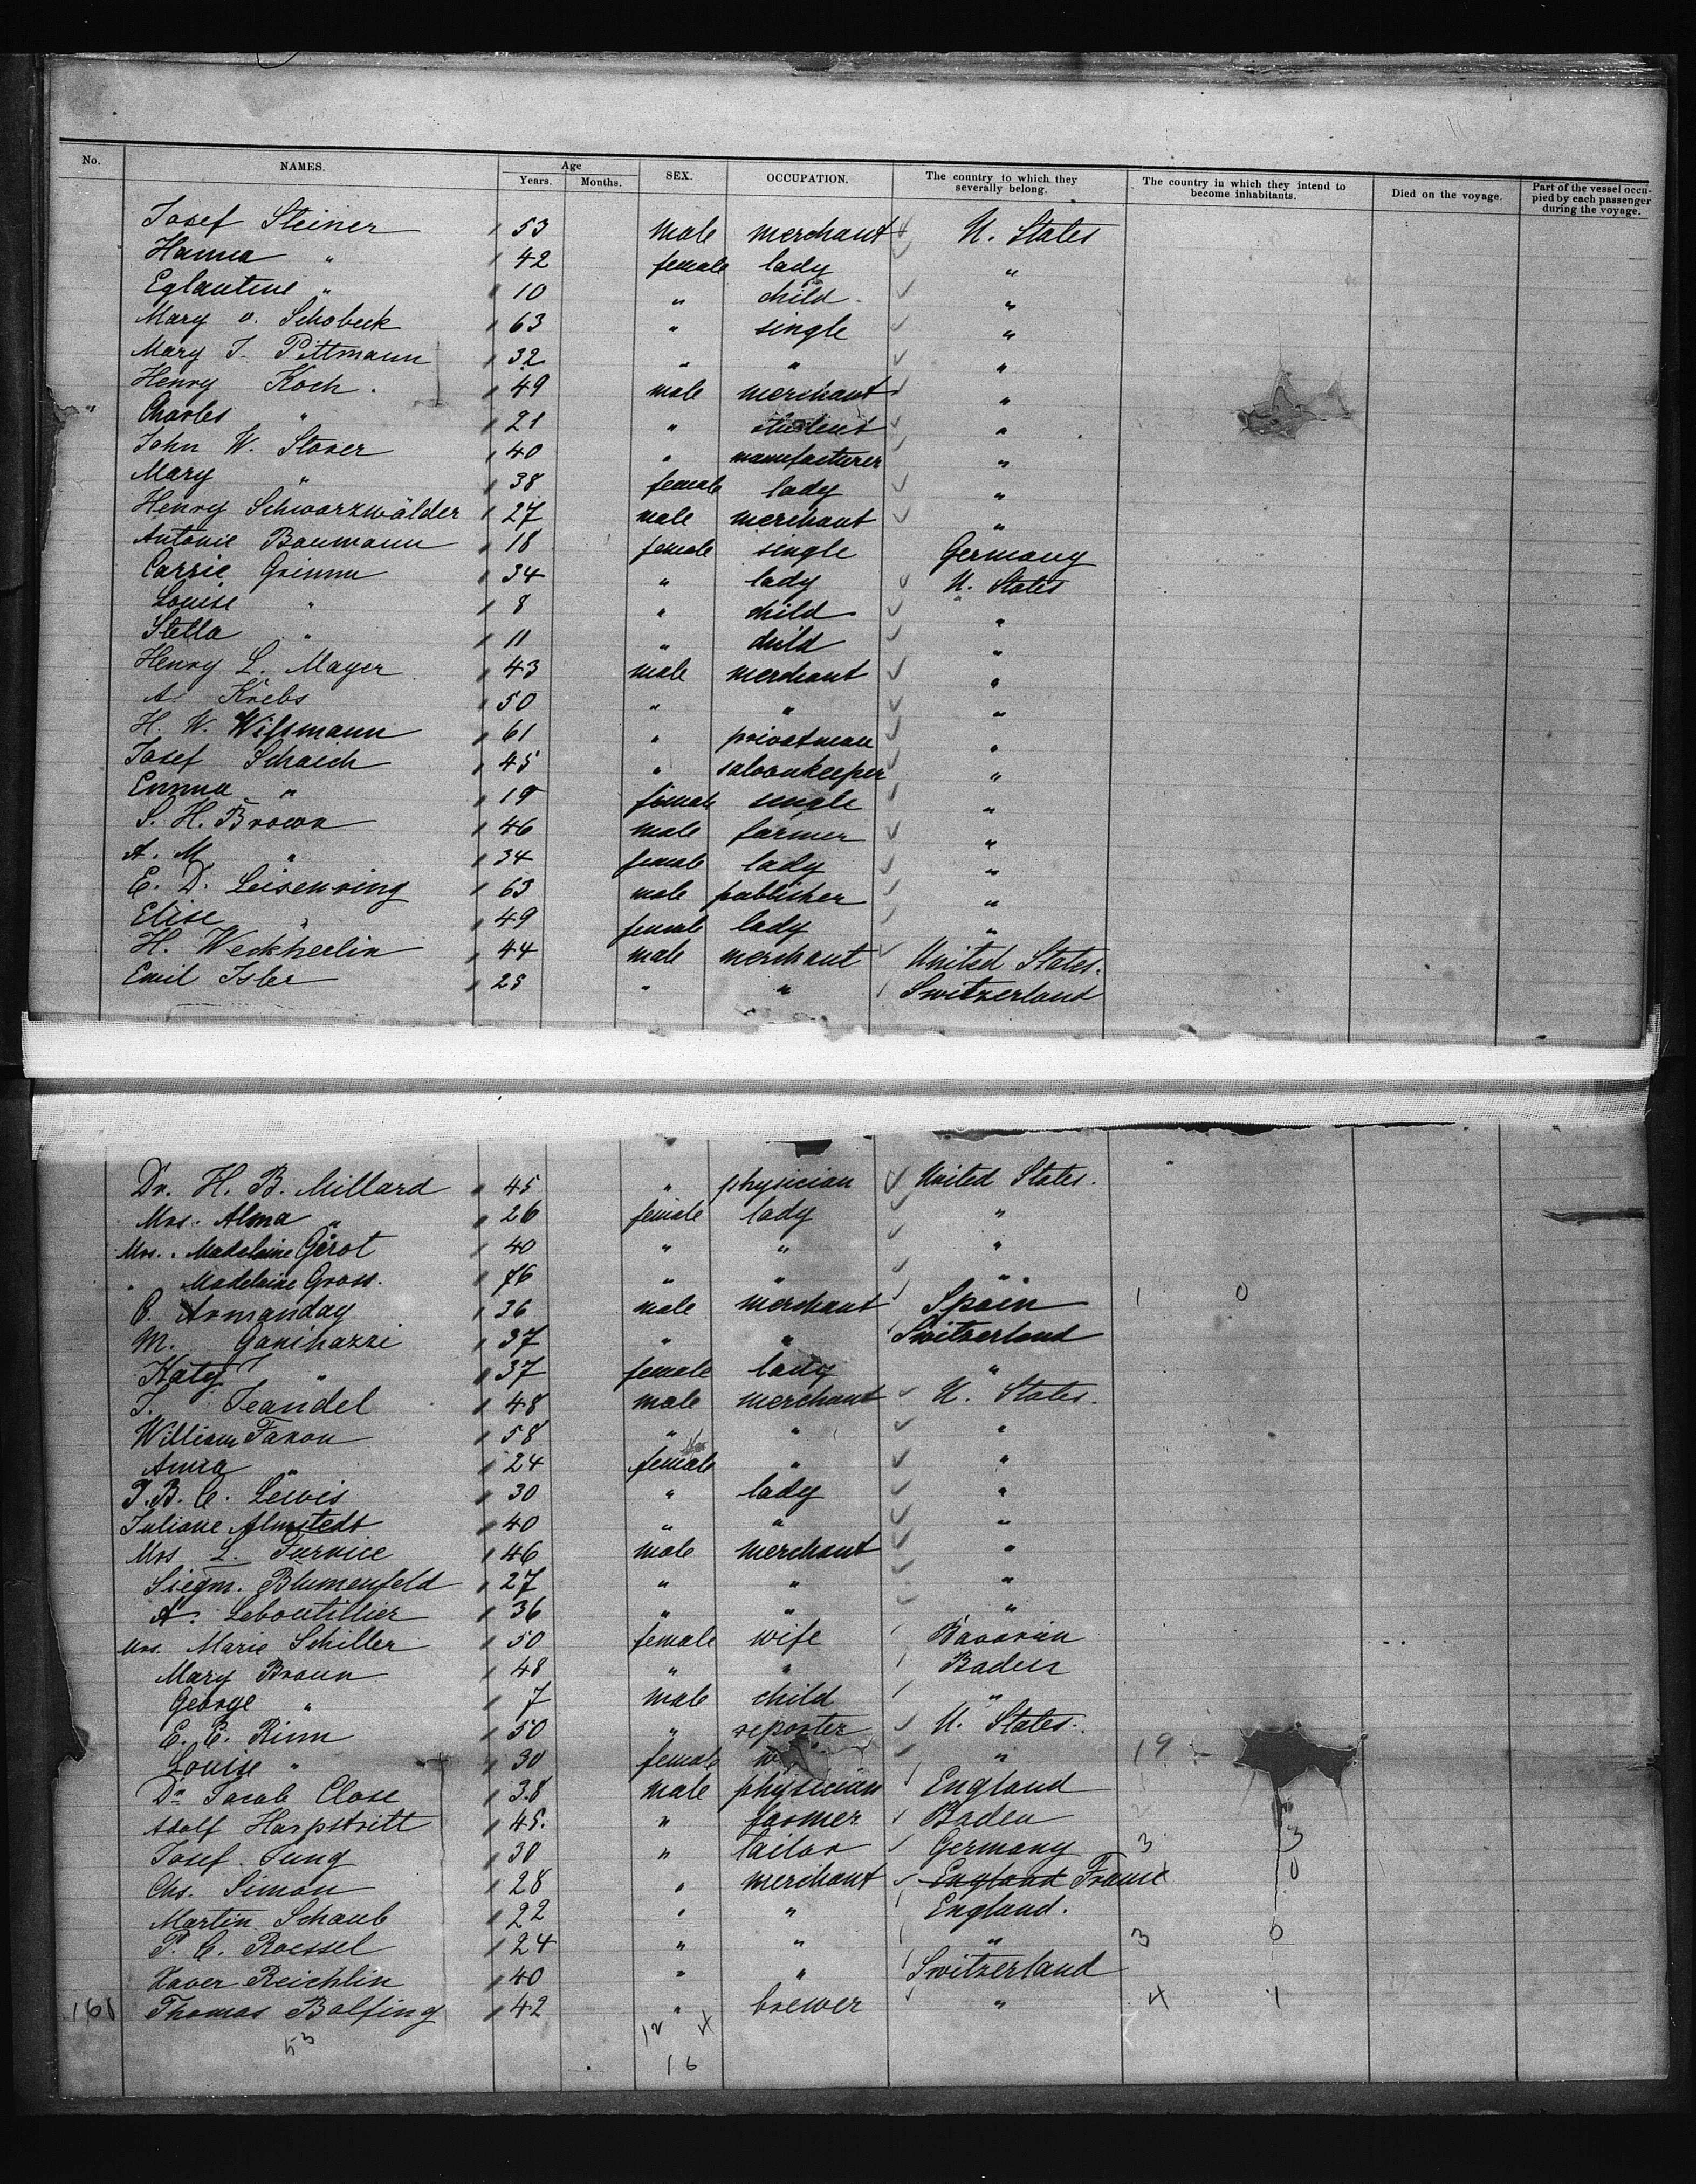 No. NAMES. Age Years. Months. SEX. OCCUPATION. The country to which they severally belong. The country in which they intend to become inhabitants. Died on the voyage. Part of the vessel occupied by each passenger during the voyage.
Josef Steiner 53 male merchant U. States
Hanna " 42 female lady "
Eglantine " 10 " child "
Mary v. Schobeck 63 " single "
Mary J. Pittmann 32 " " "
Henry Koch. 49 male merchant "
Charles " 21 " student "
John W. Stoxer 40 " manufacturer "
Mary " 38 female lady "
Henry Schwarzwälder 27 male merchant "
Antonie Baumann 18 female single Germany
Carrie 34 " lady U. States
Louise " 8 " child "
Stella " 11 " child "
Henry L. Mayer 43 male merchant "
A. Krebs 50 " " "
H. W. Wißmann 61 " privatman "
Josef Schaich 45 " saloonkeeper "
Emma " 19 female single "
S. H. Brown 46 male farmer "
A. M. " 34 female lady "
E. D. Leisenring 63 male publisher "
Elise " 49 female lady "
H. Weckherlin 44 male merchant United States.
Emil Isler 25 " " Switzerland
Dr. H. B. Millard 45 " physician United States.
Mrs. Alma " 26 female lady "
Mrs. Madeleine Gerot 40 " " "
" Madeleine Gross. 76 " " "
C. Armanday 36 male merchant Spain 1 0
M. 37 " " Switzerland
Katy " 37 female lady "
J. Jeandel 48 male merchant U. States.
William Faxon 58 " " "
Anna " 24 female " "
J. B. C. Lewis 30 " lady "
Juliane Almstedt 40 " " "
Mrs L. 46 male merchant "
Siegm. Blumenfeld 27 " " "
A. Leboutillier 36 " " "
Mrs. Marie Schiller 50 female wife Bavarian
Mary Braun 48 " " Baden
George " 7 male child "
E. E. Rinn 50 " reporter U. States.
Louise " 30 female " 19
Dr Jacob Close 38 male physician England
Adolf Harpstritt 45. " farmer Baden
Josef Jung 30 " tailor Germany 3 3
Chs. Simon 28 " merchant England France 0
Martin Schaub 22 " " England.
P. C. Roessel 24 " " " 3 0
Xaver Reichlin 40 " " Switzerland
168 Thomas Bolfing 42 " brewer " 4 1
53 12 4
16